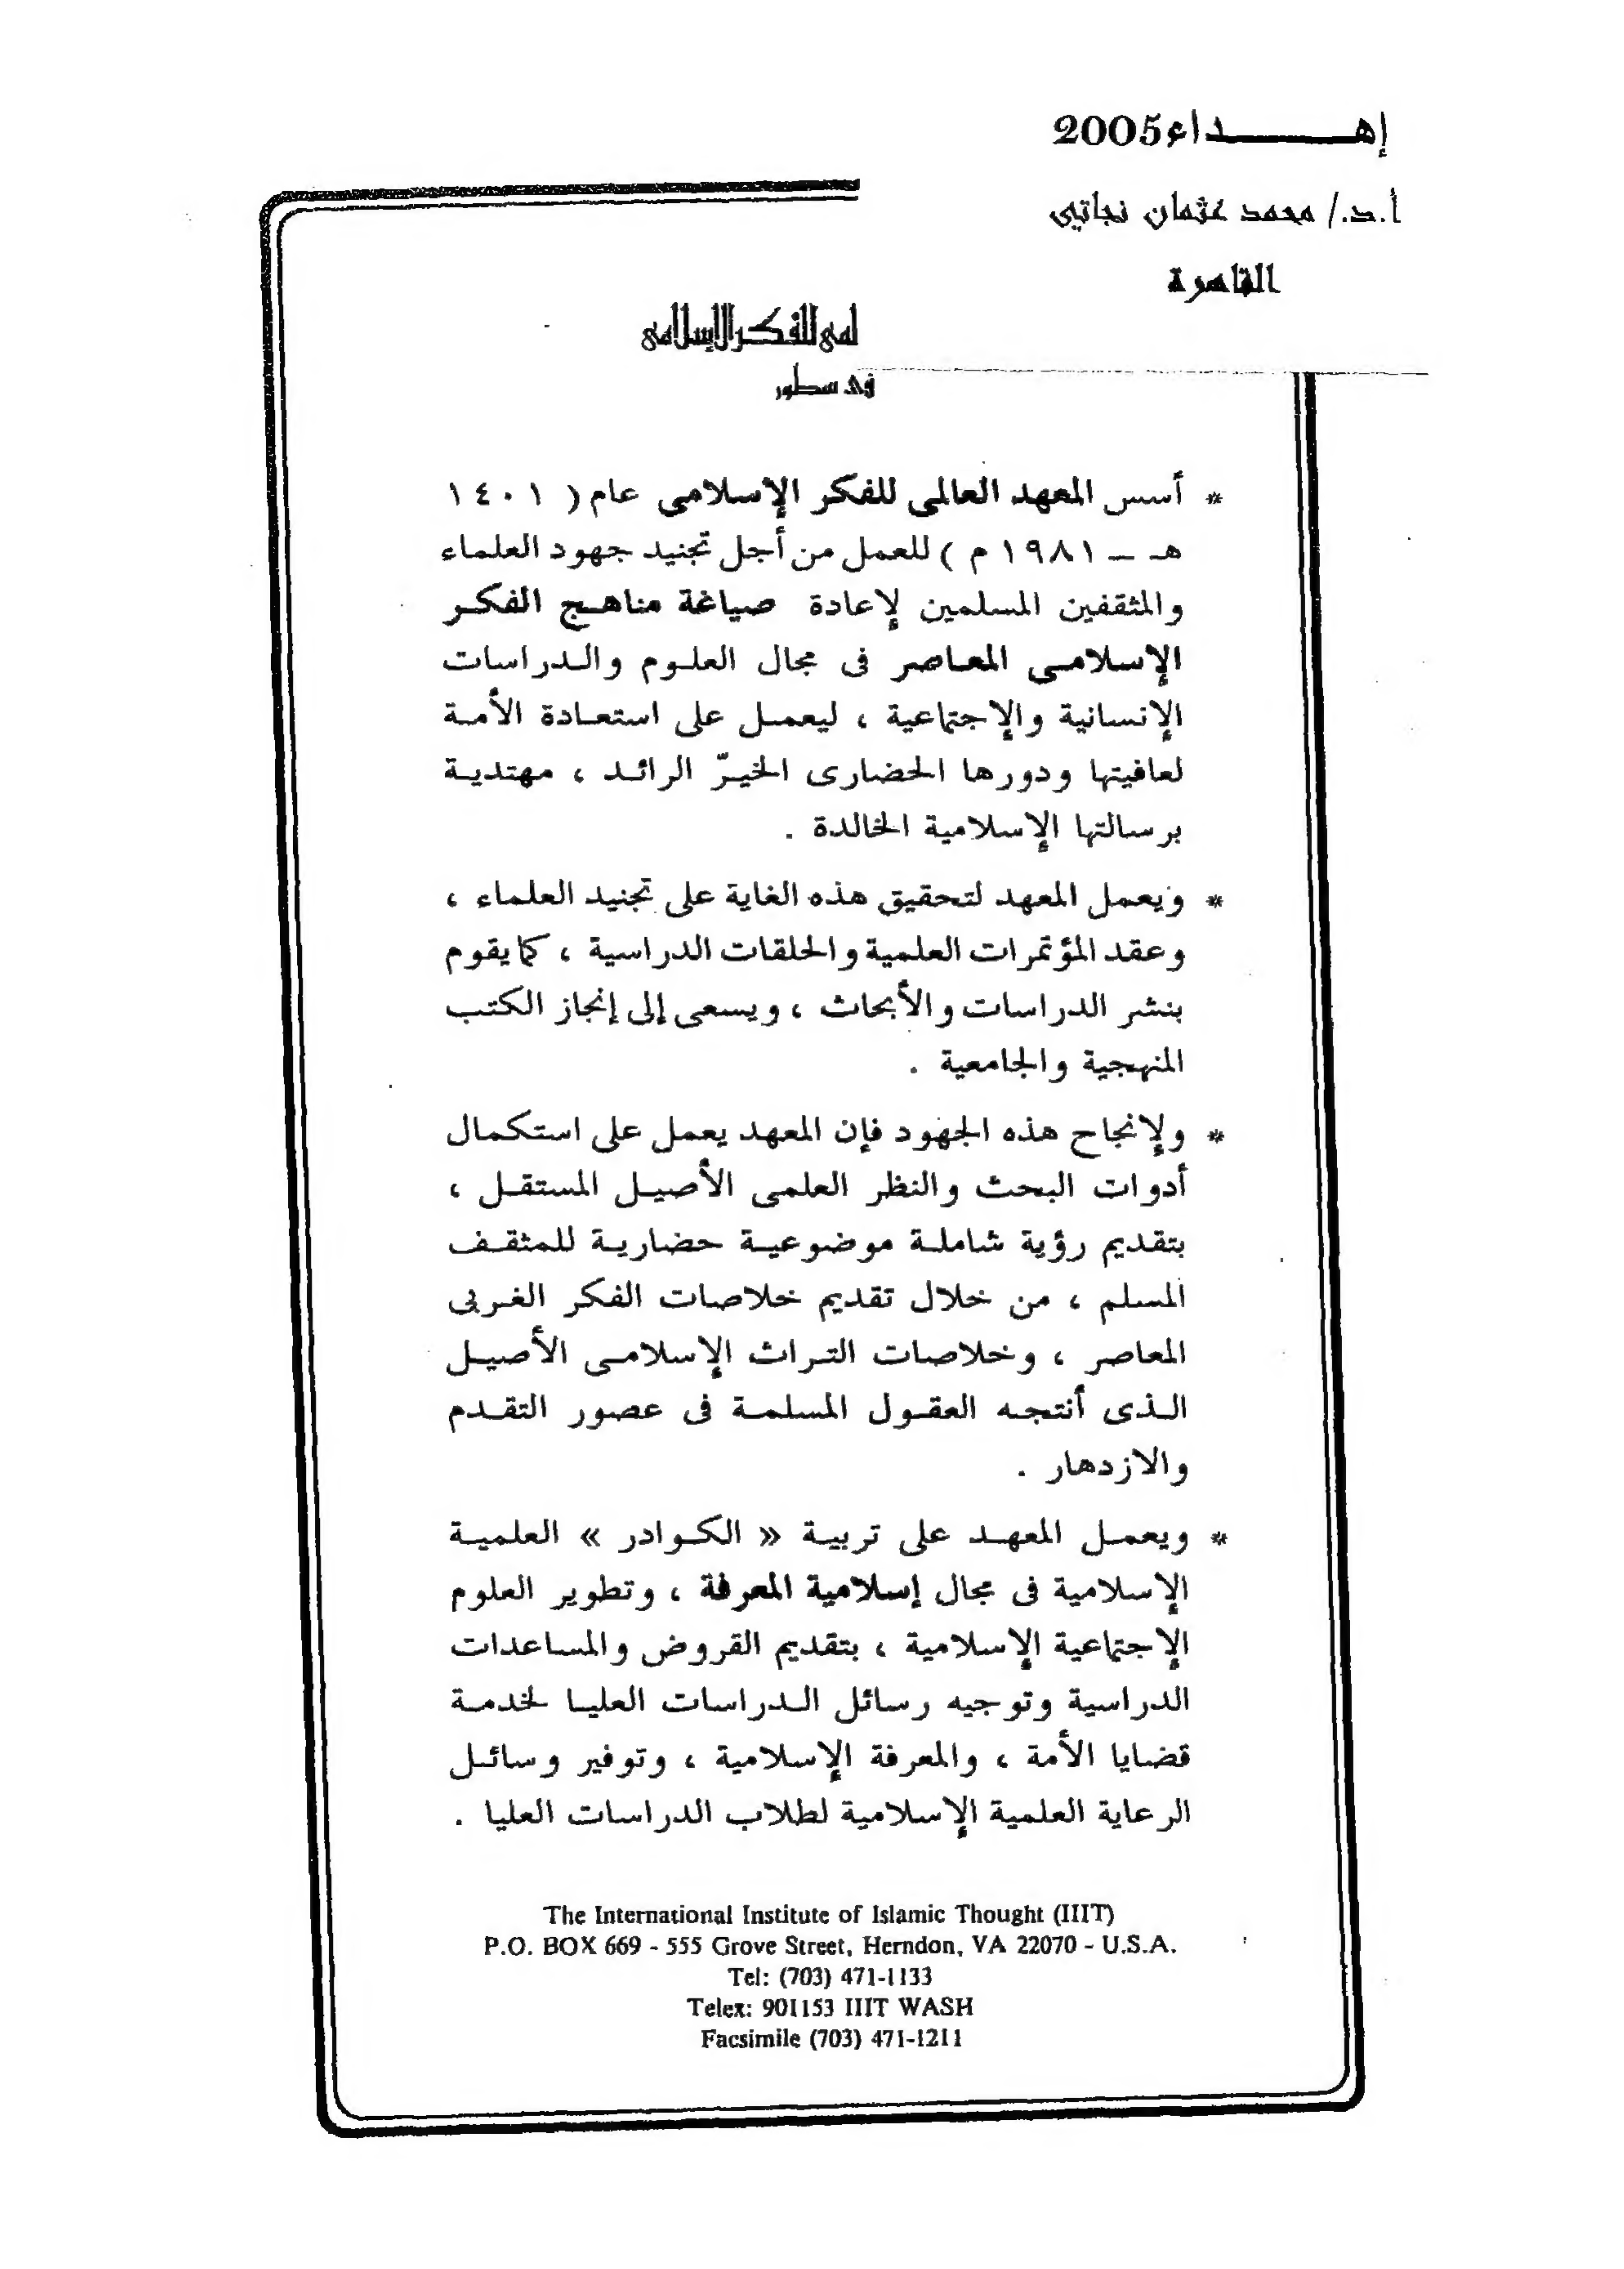 إهداء2005
أ.د./ محمد عثمان نجاتي
القاهرة
لمى للفكر الإسلامى
فى سطور
* أسس المعهد العالمى للفكر الإسلامى عام ( ١٤٠١
هـ ـ ١٩٨١ م ) للعمل من أجل تجنيد جهود العلماء
والمثقفين المسلمين لإعادة صياغة مناهج الفكر
الإسلامى المعاصر فى مجال العلوم والدراسات
الإنسانية والإجتماعية ، ليعمل على استعادة الأمة
لعافيتها ودورها الحضارى الخيرّ الرائد ، مهتدية
برسالتها الإسلامية الخالدة .
* ويعمل المعهد لتحقيق هذه الغاية على تجنيد العلماء ،
وعقد المؤتمرات العلمية والحلقات الدراسية ، كما يقوم
بنشر الدراسات والأبحاث ، ويسعى إلى إنجاز الكتب
المنهجية والجامعية .
* ولإنجاح هذه الجهود فإن المعهد يعمل على استكمال
أدوات البحث والنظر العلمى الأصيل المستقل ،
بتقديم رؤية شاملة موضوعية حضارية للمثقف
المسلم ، من خلال تقديم خلاصات الفكر الغربى
المعاصر ، وخلاصات التراث الإسلامى الأصيل
الذى أنتجه العقول المسلمة فى عصور التقدم
والازدهار .
* ويعمل المعهد على تربية « الكوادر » العلمية
الإسلامية فى مجال إسلامية المعرفة ، وتطوير العلوم
الإجتماعية الإسلامية ، بتقديم القروض والمساعدات
الدراسية وتوجيه رسائل الدراسات العليا لخدمة
قضايا الأمة ، والمعرفة الإسلامية ، وتوفير وسائل
الرعاية العلمية الإسلامية لطلاب الدراسات العليا .
The International Institute of Islamic Thought (IIIT)
P.O. BOX 669 - 555 Grove Street, Herndon, VA 22070 - U.S.A.
Tel: (703) 471-1133
Telex: 901153 IIIT WASH
Facsimile (703) 471-1211